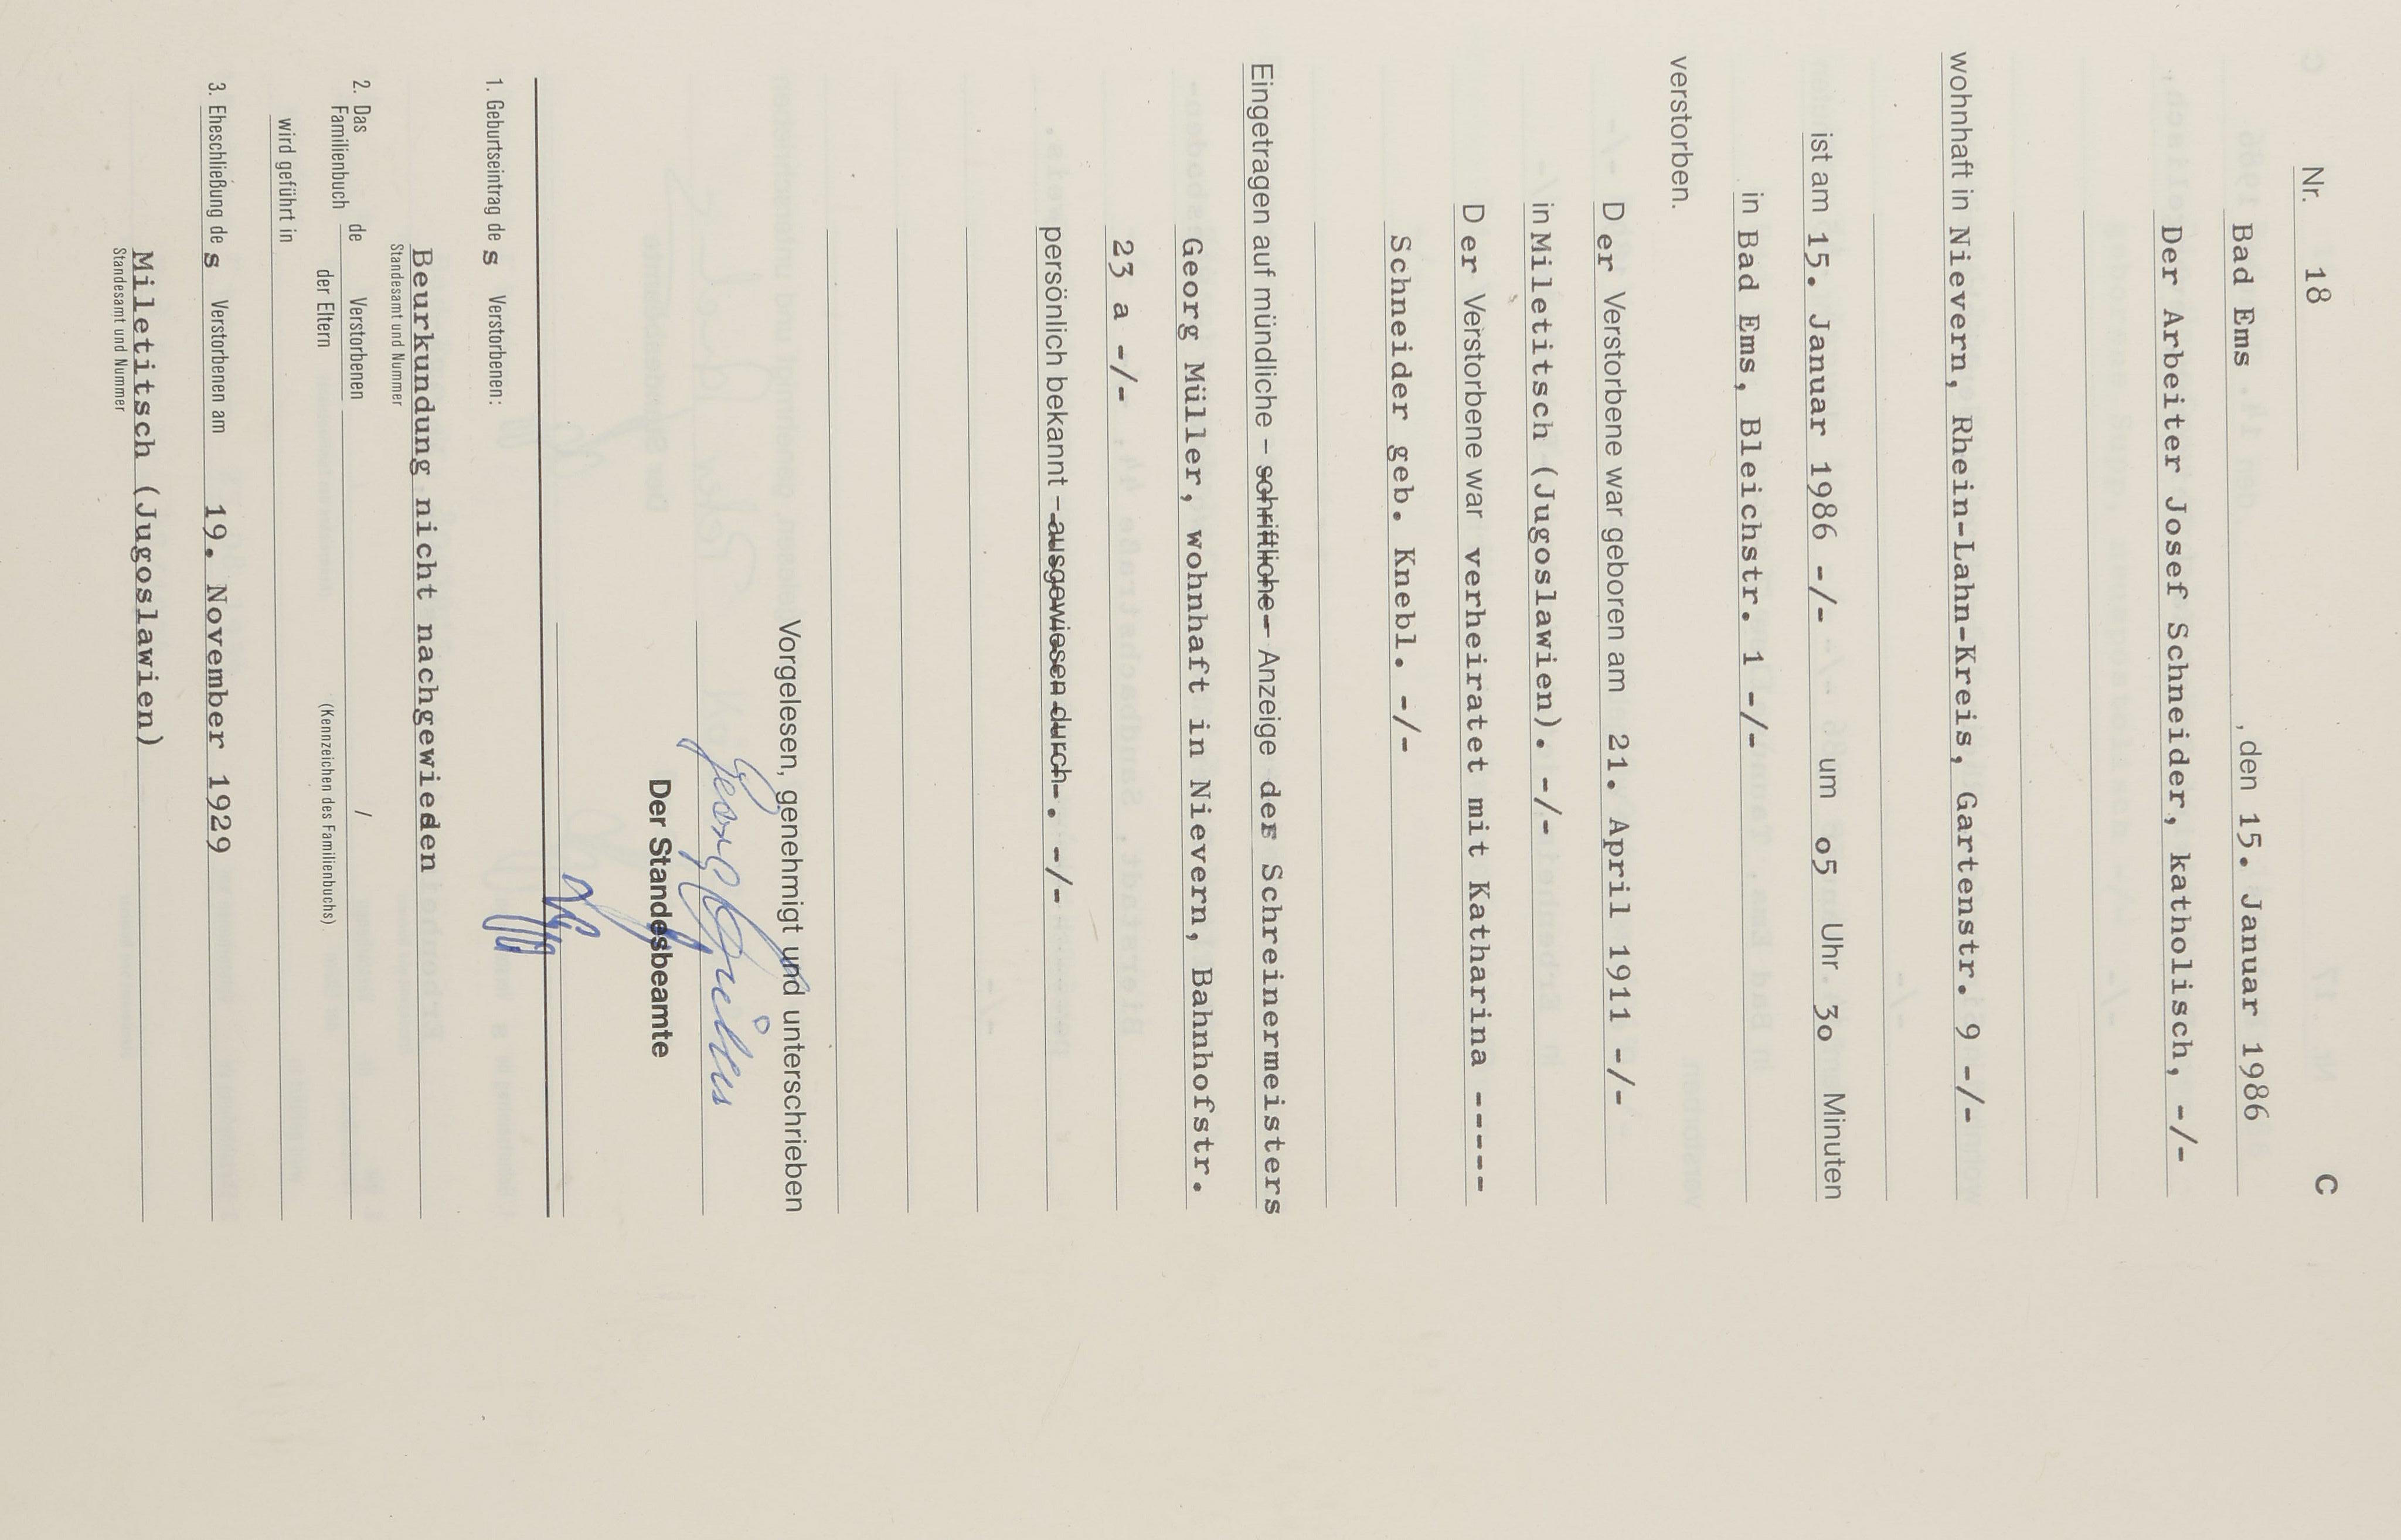 Nr. 18 C
Bad Ems , den 15. Januar 1986
Der Arbeiter Josef Schneider, katholisch, -/-
wohnhaft in Nievern, Rhein-Lahn-Kreis, Gartenstr. 9 -/-
ist am 15. Januar 1986 -/- um o5 Uhr 3o Minuten
in Bad Ems, Bleichstr. 1 -/-
verstorben.
Der Verstorbene war geboren am 21. April 1911 -/-
in Miletitsch (Jugoslawien). -/-
Der Verstorbene war verheiratet mit Katharina -----
Schneider geb. Knebl. -/-
Eingetragen auf mündliche – schriftliche – Anzeige des Schreinermeisters
Georg Müller, wohnhaft in Nievern, Bahnhofstr.
23 a -/-
persönlich bekannt – ausgewiesen durch-. -/-
Vorgelesen, genehmigt und unterschrieben
Georg Müller
Der Standesbeamte
1. Geburtseintrag des Verstorbenen:
Beurkundung nicht nachgewieden
Standesamt und Nummer
2. Das Familienbuch de Verstorbenen /
der Eltern (Kennzeichen des Familienbuchs)
wird geführt in
3. Eheschließung des Verstorbenen am 19. November 1929
Miletitsch (Jugoslawien)
Standesamt und Nummer